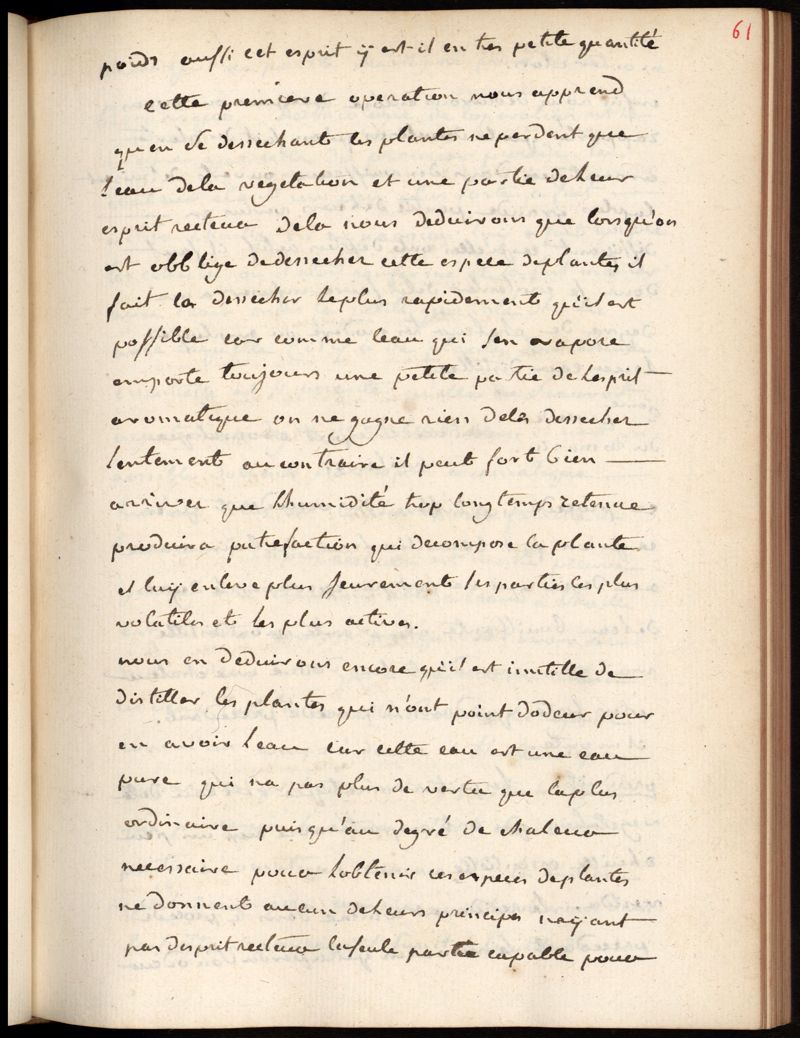 61
poids aussi cet esprit ÿ est-il en tres petite quantité
cette premiere operation nous apprend
qu'en se dessechant les plantes ne perdent que
l'eau dela vegetation et une partie deleur
esprit recteur dela nous deduirons que lorsqu'on
est obblige dedessecher cette espece deplantes il
faut la dessecher leplus rapidement qu'il est
possible car comme leau qui s'en evapore
emporte toujours une petite partie delesprit
aromatique on ne gagne rien dela dessecher
lentement au contraire il peut fort bien
arriver que lhumidité trop longtemps retenue
produira putrefaction qui decompose la plante
et luÿ enleve plus seurement les parties les plus
volatiles et les plus actives.
nous en deduirons encore qu'il est inutille de
distiller les plantes qui n'ont point dodeur pour
en avoir leau car cette eau est une eau
pure qui na pas plus de vertu que laplus
ordinaire puisqu'au degré de chaleur
necessaire pour lobtenir ces especes deplantes
ne donnent aucun deleurs principes naÿant
pas desprit recteur laseule partie capable pour